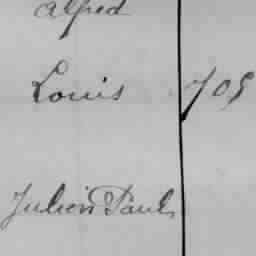 Alfred
Louis 705
Julien Paul